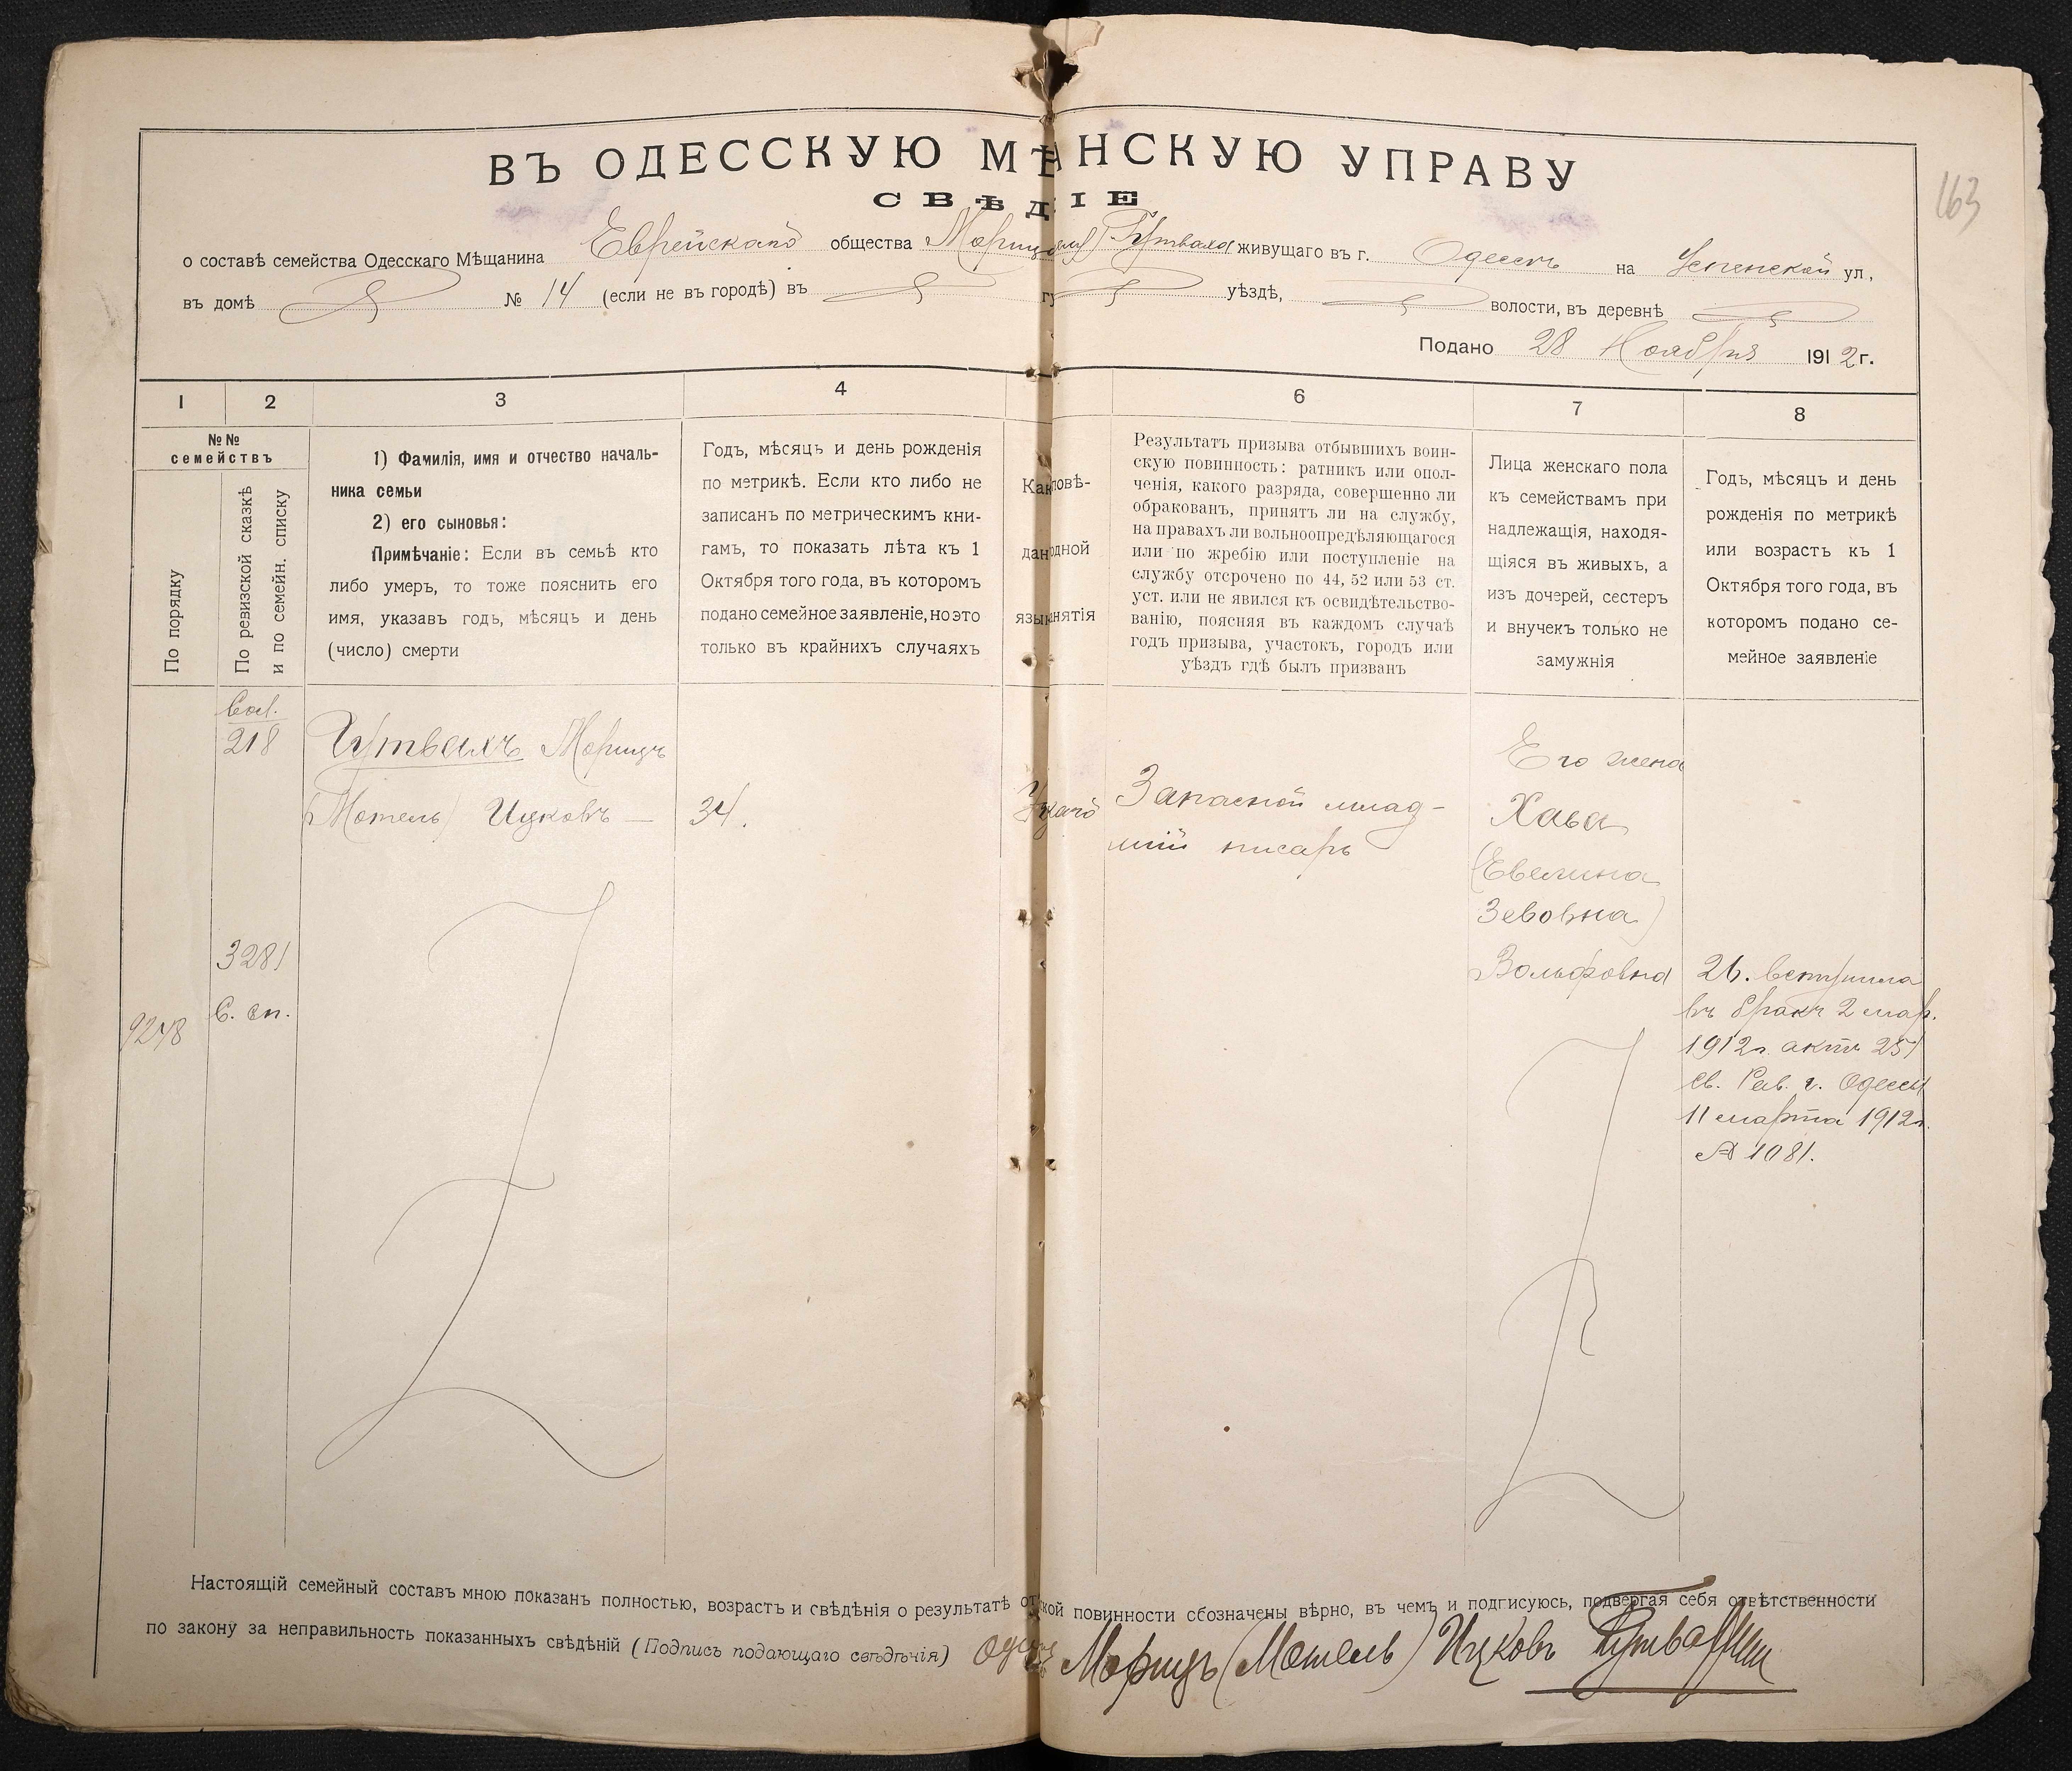 ВЪ ОДЕССКУЮ МѢ НСКУЮ УПРАВУ
СВѢД ІЕ
163
о составѣ семейства Одесскаго Мѣщанина Еврейскаго общества Морица Гутваха живущаго въ г. Одессѣ на Успенской ул,
въ домѣ № 14 (если не въ городѣ) въ гу уѣздѣ, волости, въ деревнѣ
Подано 28 Ноября 1912 г.
1 2 3 4 6 7 8
№№ семействъ
По порядку
По ревизской сказкѣ
и по семейн. списку
1) Фамилія, имя и отчество началь-
ника семьи
2) его сыновья:
Примѣчаніе: Если въ семьѣ кто
либо умеръ, то тоже пояснить его
имя, указавъ годъ, мѣсяцъ и день
(число) смерти
Годъ, мѣсяцъ и день рожденія
по метрикѣ. Если кто либо не
записанъ по метрическимъ кни-
гамъ, то показать лѣта къ 1
Октября того года, въ которомъ
подано семейное заявленіе, но это
только въ крайнихъ случаяхъ
Как повѣ-
дан одной
язы нятія
Результатъ призыва отбывшихъ воин-
скую повинность: ратникъ или опол-
ченія, какого разряда, совершенно ли
обракованъ, принятъ ли на службу,
на правахъ ли вольноопредѣляющагося
или по жребію или поступленіе на
службу отсрочено по 44, 52 или 53 ст.
уст. или не явился къ освидѣтельство-
ванію, поясняя въ каждомъ случаѣ
годъ призыва, участокъ, городъ или
уѣздъ гдѣ былъ призванъ
Лица женскаго пола
къ семействамъ при
надлежащія, находя-
щіяся въ живыхъ, а
изъ дочерей, сестеръ
и внучекъ только не
замужнія
Годъ, мѣсяцъ и день
рожденія по метрикѣ
или возрастъ къ 1
Октября того года, въ
которомъ подано се-
мейное заявленіе
218
3281
С. сп.
9248
Гутвахъ Морицъ
(Мотель) Ицковъ —
34.
Запасной млад-
шій писарь
Его жена
Хава
(Евелина
Зевовна)
Вольфовна
26. вступила
въ бракъ 2 мар.
1912г. актъ 251
св. Рав. г. Одессы
11 марта 1912г.
№ 1081.
Настоящій семейный составъ мною показанъ полностью, возрастъ и свѣдѣнія о результатѣ от ской повинности обозначены вѣрно, въ чемъ и подписуюсь, подвергая себя отвѣтственности
по закону за неправильность показанныхъ свѣдѣній (Подпись подающаго свѣдѣнія) Морицъ (Мотель) Ицковъ Гутвахъ